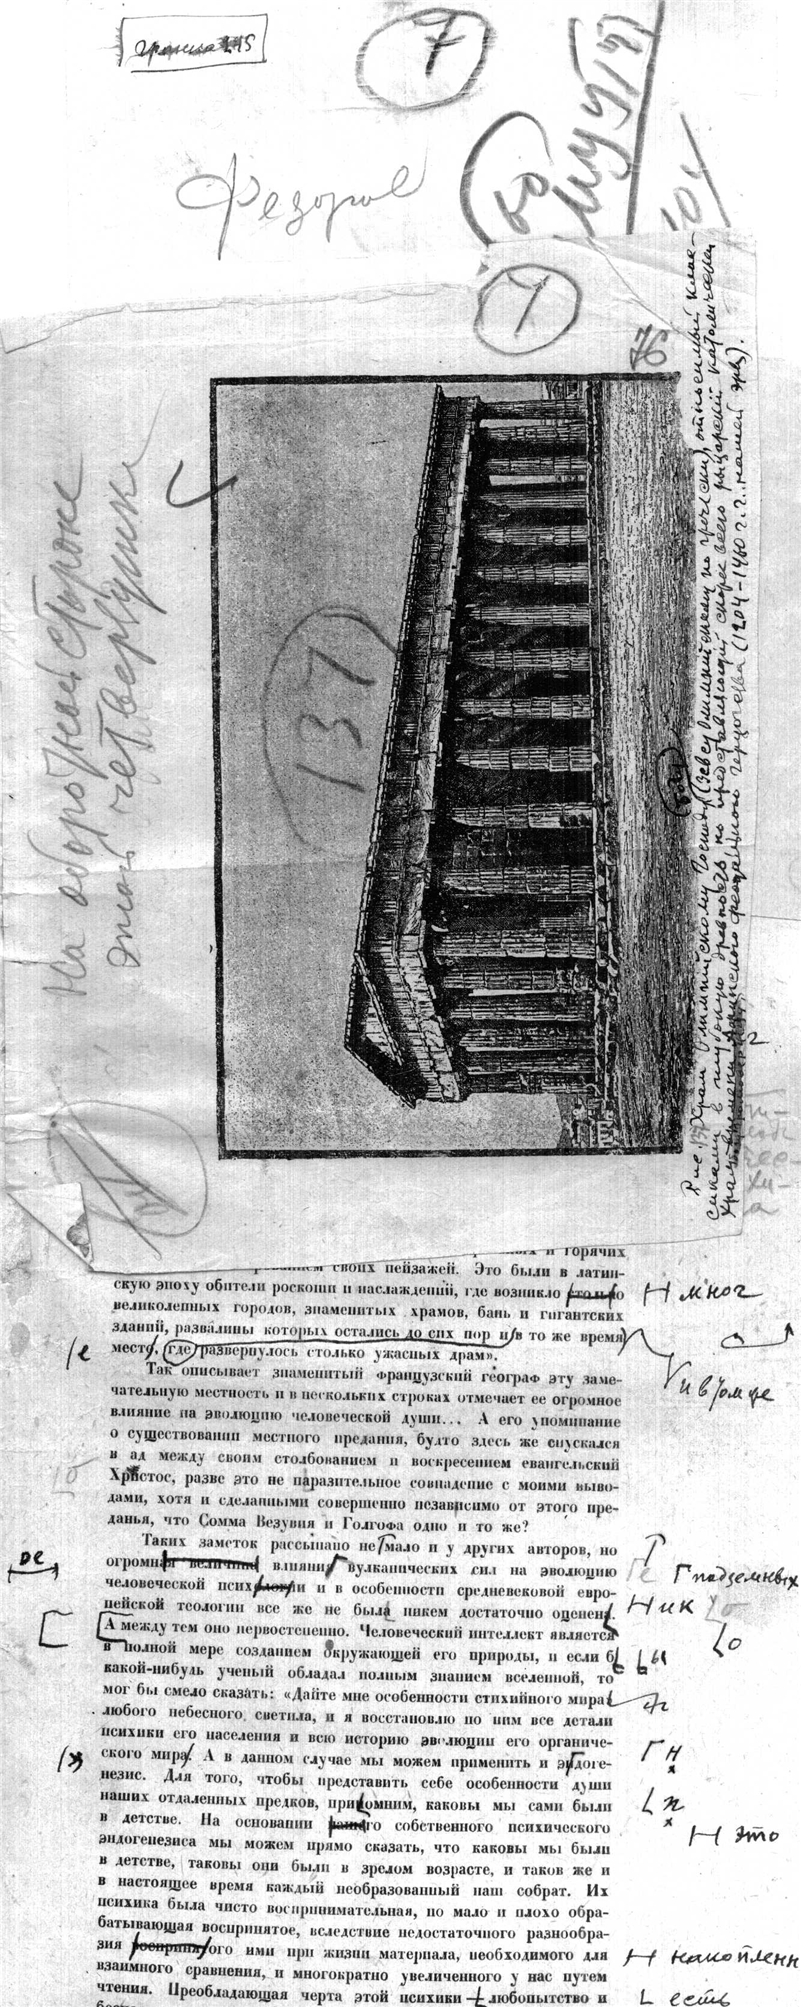 граница 215
7
Федоров
60
10ч
7
76
На оборотной стороне
этой четвертушки
137
Рис. 137. Храм Олимпийскому Господу (Зевсу Олимпийскому по гречески) относимый клас-
сиками в глубокую древность, но представляющий скорее всего рыцарский католический
храм времени Афинского феодального герцогства (1204-1460 г.г. нашей эры).
и горячих
своих пейзажей. Это были в латин-
скую эпоху обители роскоши и наслаждений, где возникло столько
великолепных городов, знаменитых храмов, бань и гигантских
зданий, развалины которых остались до сих пор и в то же время
место, где развернулось столько ужасных драм».
Так описывает знаменитый французский географ эту заме-
чательную местность и в нескольких строках отмечает ее огромное
влияние на эволюцию человеческой души... А его упоминание
о существовании местного предания, будто здесь же спускался
в ад между своим столбованием и воскресением евангельский
Христос, разве это не паразительное совпадение с моими выво-
дами, хотя и сделанными совершенно независимо от этого пре-
данья, что Сомма Везувия и Голгофа одно и то же?
Таких заметок рассыпано немало и у других авторов, но
огромная величина влияния вулканических сил на эволюцию
человеческой психологии и в особенности средневековой евро-
пейской теологии все же не была никем достаточно оценена.
А между тем оно первостепенно. Человеческий интеллект является
в полной мере созданием окружающей его природы, и если б
какой-нибудь ученый обладал полным знанием вселенной, то
мог бы смело сказать: «Дайте мне особенности стихийного мира
любого небесного светила, и я восстановлю по ним все детали
психики его населения и всю историю эволюции его органиче-
ского мира. А в данном случае мы можем применить и эндоге-
незис. Для того, чтобы представить себе особенности души
наших отдаленных предков, припомним, каковы мы сами были
в детстве. На основании нашего собственного психического
эндогенезиса мы можем прямо сказать, что каковы мы были
в детстве, таковы они были в зрелом возрасте, и таков же и
в настоящее время каждый необразованный наш собрат. Их
психика была чисто воспринимательная, но мало и плохо обра-
батывающая воспринятое, вследствие недостаточного разнообра-
зия воспринятого ими при жизни материала, необходимого для
взаимного сравнения, и многократно увеличенного у нас путем
чтения. Преобладающая черта этой психики — любопытство и
мног
е
и в том же
ое
подземных
ик
о
ы
н
п
это
накопленн
есть